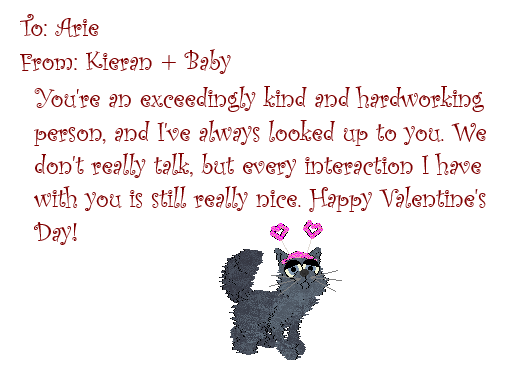 To: Arie
From: Kieran + Baby
You're an exceedingly kind and hardworking
person, and I've always looked up to you. We
don't really talk, but every interaction I have
with you is still really nice. Happy Valentine's
Day!